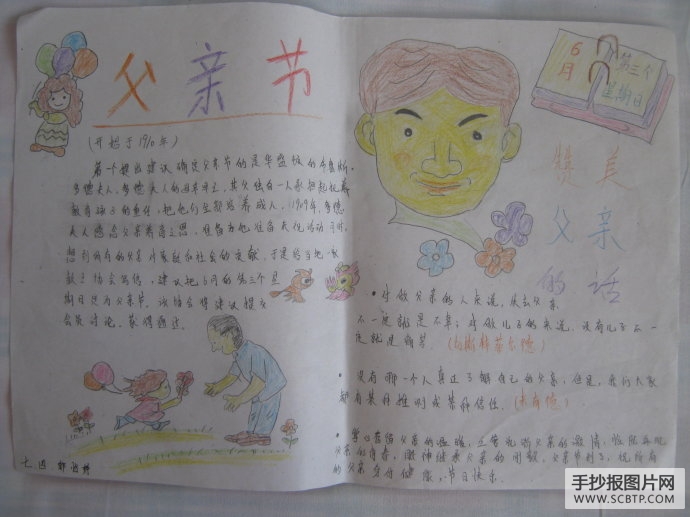 父亲节
(开始于1910年)
第一个提出建议确定父亲节的是华盛顿的布鲁斯·
多德夫人。多德夫人的母亲早亡,其父独自一人承担起抚养
教育孩子的重任,把他们全部培养成人。1909年,多德
夫人感念父亲养育之恩,准备为他准备庆祝活动,同时,
想到所有的父亲对家庭和社会的贡献,于是给当地教
教士协会写信,建议把6月的第三个星
期日定为父亲节。该协会将建议提交
会员讨论,获得通过。
七、四、
6月
第三个
星期日
赞美
父亲
的话
·对做父亲的人来说,失去父亲
不一定就是不幸;对做儿子的来说,没有儿子不一
定就是痛苦。(切斯特菲尔德)
·没有哪一个人真正了解自己的父亲,但是,我们大家
都有某种推测或某种信任。(米南德)
父亲的青春,
继承父亲的刚毅。父亲节到了,祝所有
的父亲身体健康,节日快乐。
手抄报图片网
WWW.SCBTP.COM